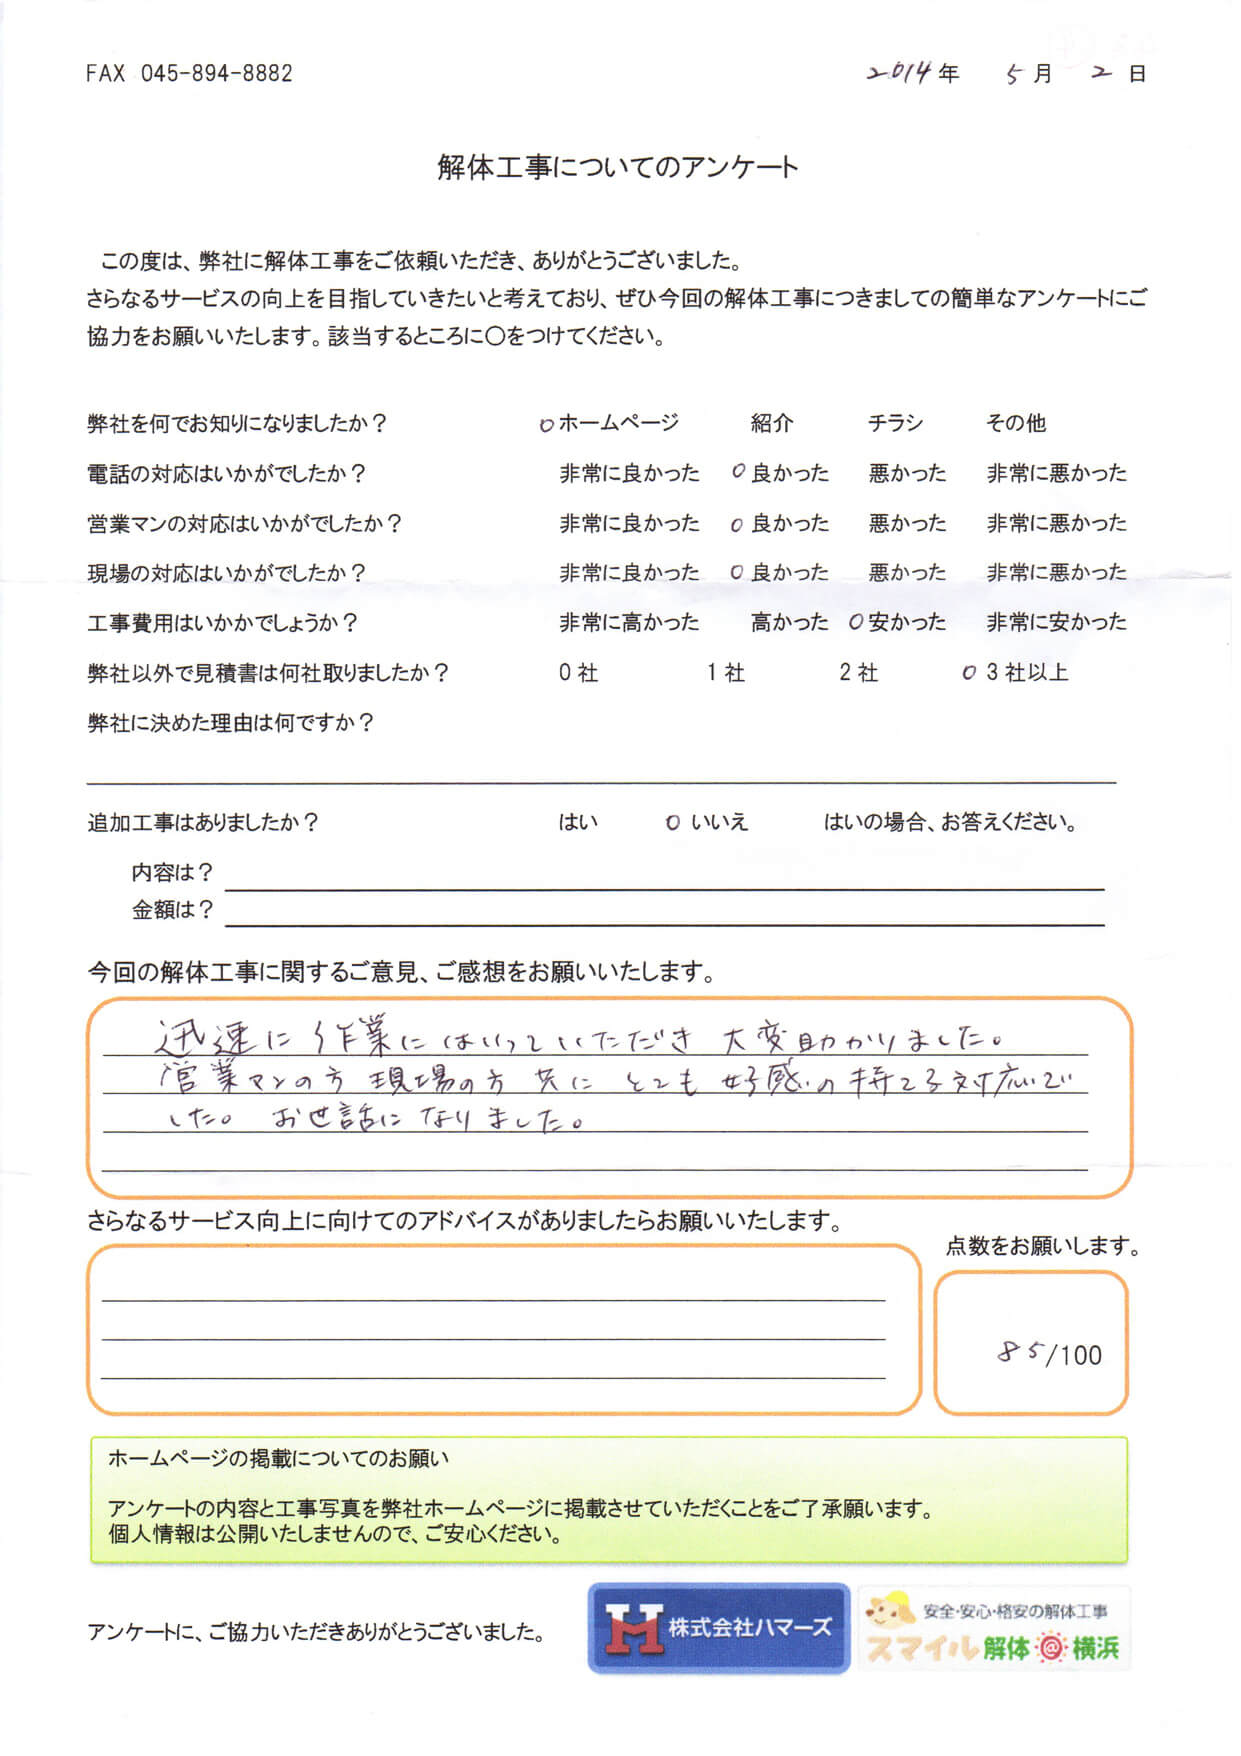 FAX 045-894-8882 2014年 5月 2日
解体工事についてのアンケート
この度は、弊社に解体工事をご依頼いただき、ありがとうございました。
さらなるサービスの向上を目指していきたいと考えており、ぜひ今回の解体工事につきましての簡単なアンケートにご
協力をお願いいたします。該当するところに〇をつけてください。
弊社を何でお知りになりましたか？ ○ホームページ 紹介 チラシ その他
電話の対応はいかがでしたか？ 非常に良かった ○良かった 悪かった 非常に悪かった
営業マンの対応はいかがでしたか？ 非常に良かった ○良かった 悪かった 非常に悪かった
現場の対応はいかがでしたか？ 非常に良かった ○良かった 悪かった 非常に悪かった
工事費用はいかかでしょうか？ 非常に高かった 高かった ○安かった 非常に安かった
弊社以外で見積書は何社取りましたか？ 0社 1社 2社 ○3社以上
弊社に決めた理由は何ですか？
追加工事はありましたか？ はい ○いいえ はいの場合、お答えください。
内容は？
金額は？
今回の解体工事に関するご意見、ご感想をお願いいたします。
迅速に作業にはいっていただき 大変助かりました。
営業マンの方 現場の方 共に とても 好感の持てる対応で
した。 お世話になりました。
さらなるサービス向上に向けてのアドバイスがありましたらお願いいたします。
点数をお願いします。
85/100
ホームページの掲載についてのお願い
アンケートの内容と工事写真を弊社ホームページに掲載させていただくことをご了承願います。
個人情報は公開いたしませんので、ご安心ください。
アンケートに、ご協力いただきありがとうございました。
H 株式会社ハマーズ
安全・安心・格安の解体工事
スマイル解体@横浜